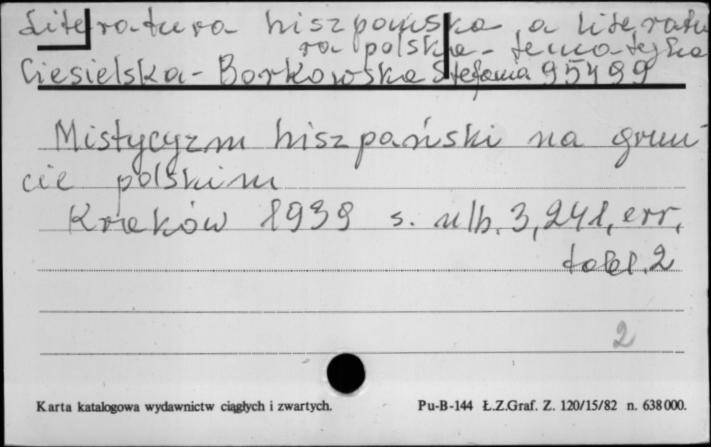 Literatura hiszpańska a literatu
ra polska - tematyka
Ciesielska-Borkowska Stefania 95499
Mistycyzm hiszpański na grun-
cie polskim
Kraków 1939 s. nlb. 3, 241, err,
tabl. 2
2
Karta katalogowa wydawnictw ciągłych i zwartych. Pu-B-144 Ł.Z.Graf. Z. 120/15/82 n. 638000.